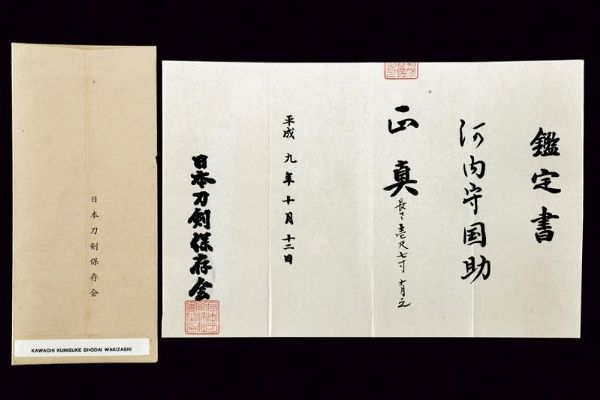 鑑定書
河内守国助
正真
長さ壱尺七寸
平成九年十月十二日
日本刀剣保存会
日本刀剣保存会
KAWACHI KUNISUKE SHODAI WAKIZASHI